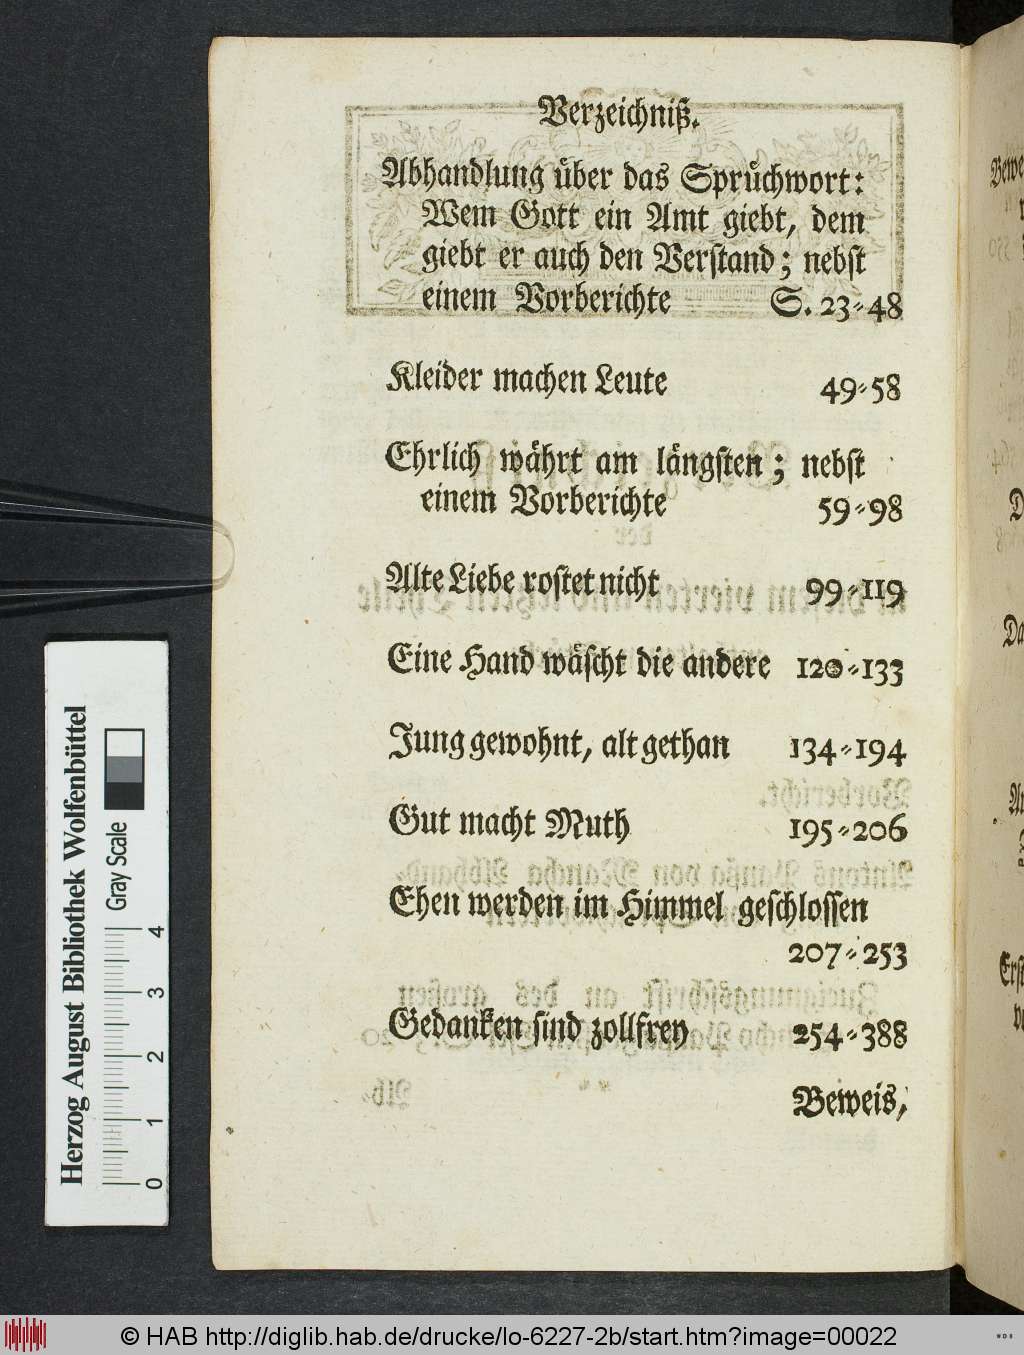 Verzeichniß.
Abhandlung über das Sprüchwort:
Wem Gott ein Amt giebt, dem
giebt er auch den Verstand; nebst
einem Vorberichte S. 23-48
Kleider machen Leute 49-58
Ehrlich währt am längsten; nebst
einem Vorberichte 59-98
Alte Liebe rostet nicht 99-119
Eine Hand wäscht die andere 120-133
Jung gewohnt, alt gethan 134-194
Gut macht Muth 195-206
Ehen werden im Himmel geschlossen
207-253
Gedanken sind zollfrey 254-388
Beweis,
Herzog August Bibliothek Wolfenbüttel
Gray Scale
0 1 2 3 4
© HAB http://diglib.hab.de/drucke/lo-6227-2b/start.htm?image=00022